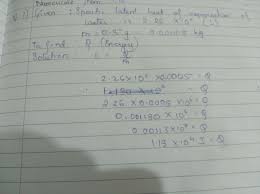 Q.1) Given : Specific latent heat of vaporization of
water is 2.26 × 10⁶
m = 0.5 g = 0.0005 kg
To find : Q (Energy)
Solution : L = Q/m
2.26 × 10⁶ × 0.0005 = Q
2.26 × 0.0005 × 10⁶ = Q
0.00130 × 10⁶ = Q
0.00113 × 10⁶ = Q
1.13 × 10⁴ J = Q